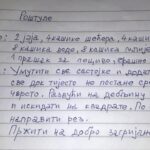 Роштуле
: 2 јаја, 4 кашике шећера, 4 каши
8 кашика воде, 8 кашика
1 прашак за пециво, брашно
: Умутити све састојке и додат
све док тијесто не постане ср
чврсто. Развући на дебљину
и искидати на квадрате. По
направити рез.
Пржити на добро загријан